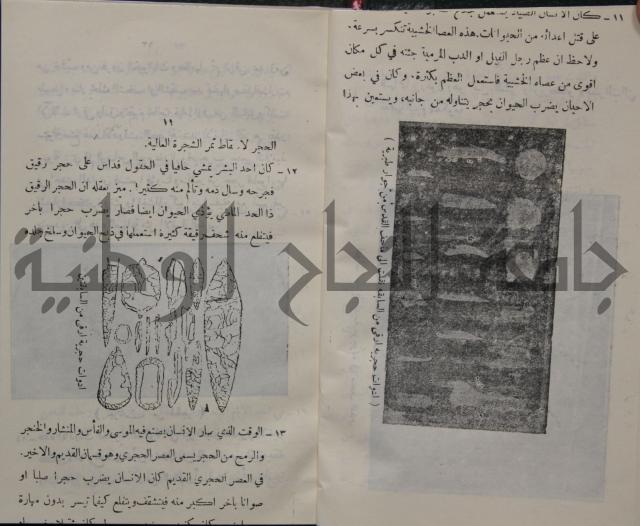 ١١ - كان الانسان
على قتل اعدائه من الحيوانات. هذه العصا الخشبية تنكسر بسرعة.
ولاحظ ان عظم رجل الفيل او الدب المرمية جثته في كل مكان
اقوى من عصاه الخشبية فاستعمل العظم بكثرة. وكان في بعض
الاحيان يضرب الحيوان بحجر يتناوله من جانبه، ويستعين بهذا
ادوات حجرية ارقى من السابقة
١١
الحجر لاسقاط ثمر الشجرة العالية.
١٢ - كان احد البشر يمشي حافيا في الحقول فداس على حجر رقيق
فجرحه وسال دمه وتألم منه كثيرا. ميز بعقله ان الحجر الرقيق
ذا الحد الماضي يؤذي الحيوان ايضا فصار يضرب حجرا بآخر
فيتفلع منه شحف رقيقة كثيرة استعملها في ذبح الحيوان وسلخ جلده
ادوات حجرية ارقى من السابقة
١٣ - الوقت الذي صار الانسان يصنع فيه الموسى والفأس والمنشار والخنجر
والرمح من الحجر يسمى العصر الحجري وهو قسمان القديم والاخير.
في العصر الحجري القديم كان الانسان يضرب حجرا صلبا او
صوانا بآخر اكبر منه فيتشقف ويتفلع كيفما تيسر بدون مهارة
جامعة النجاح الوطنية